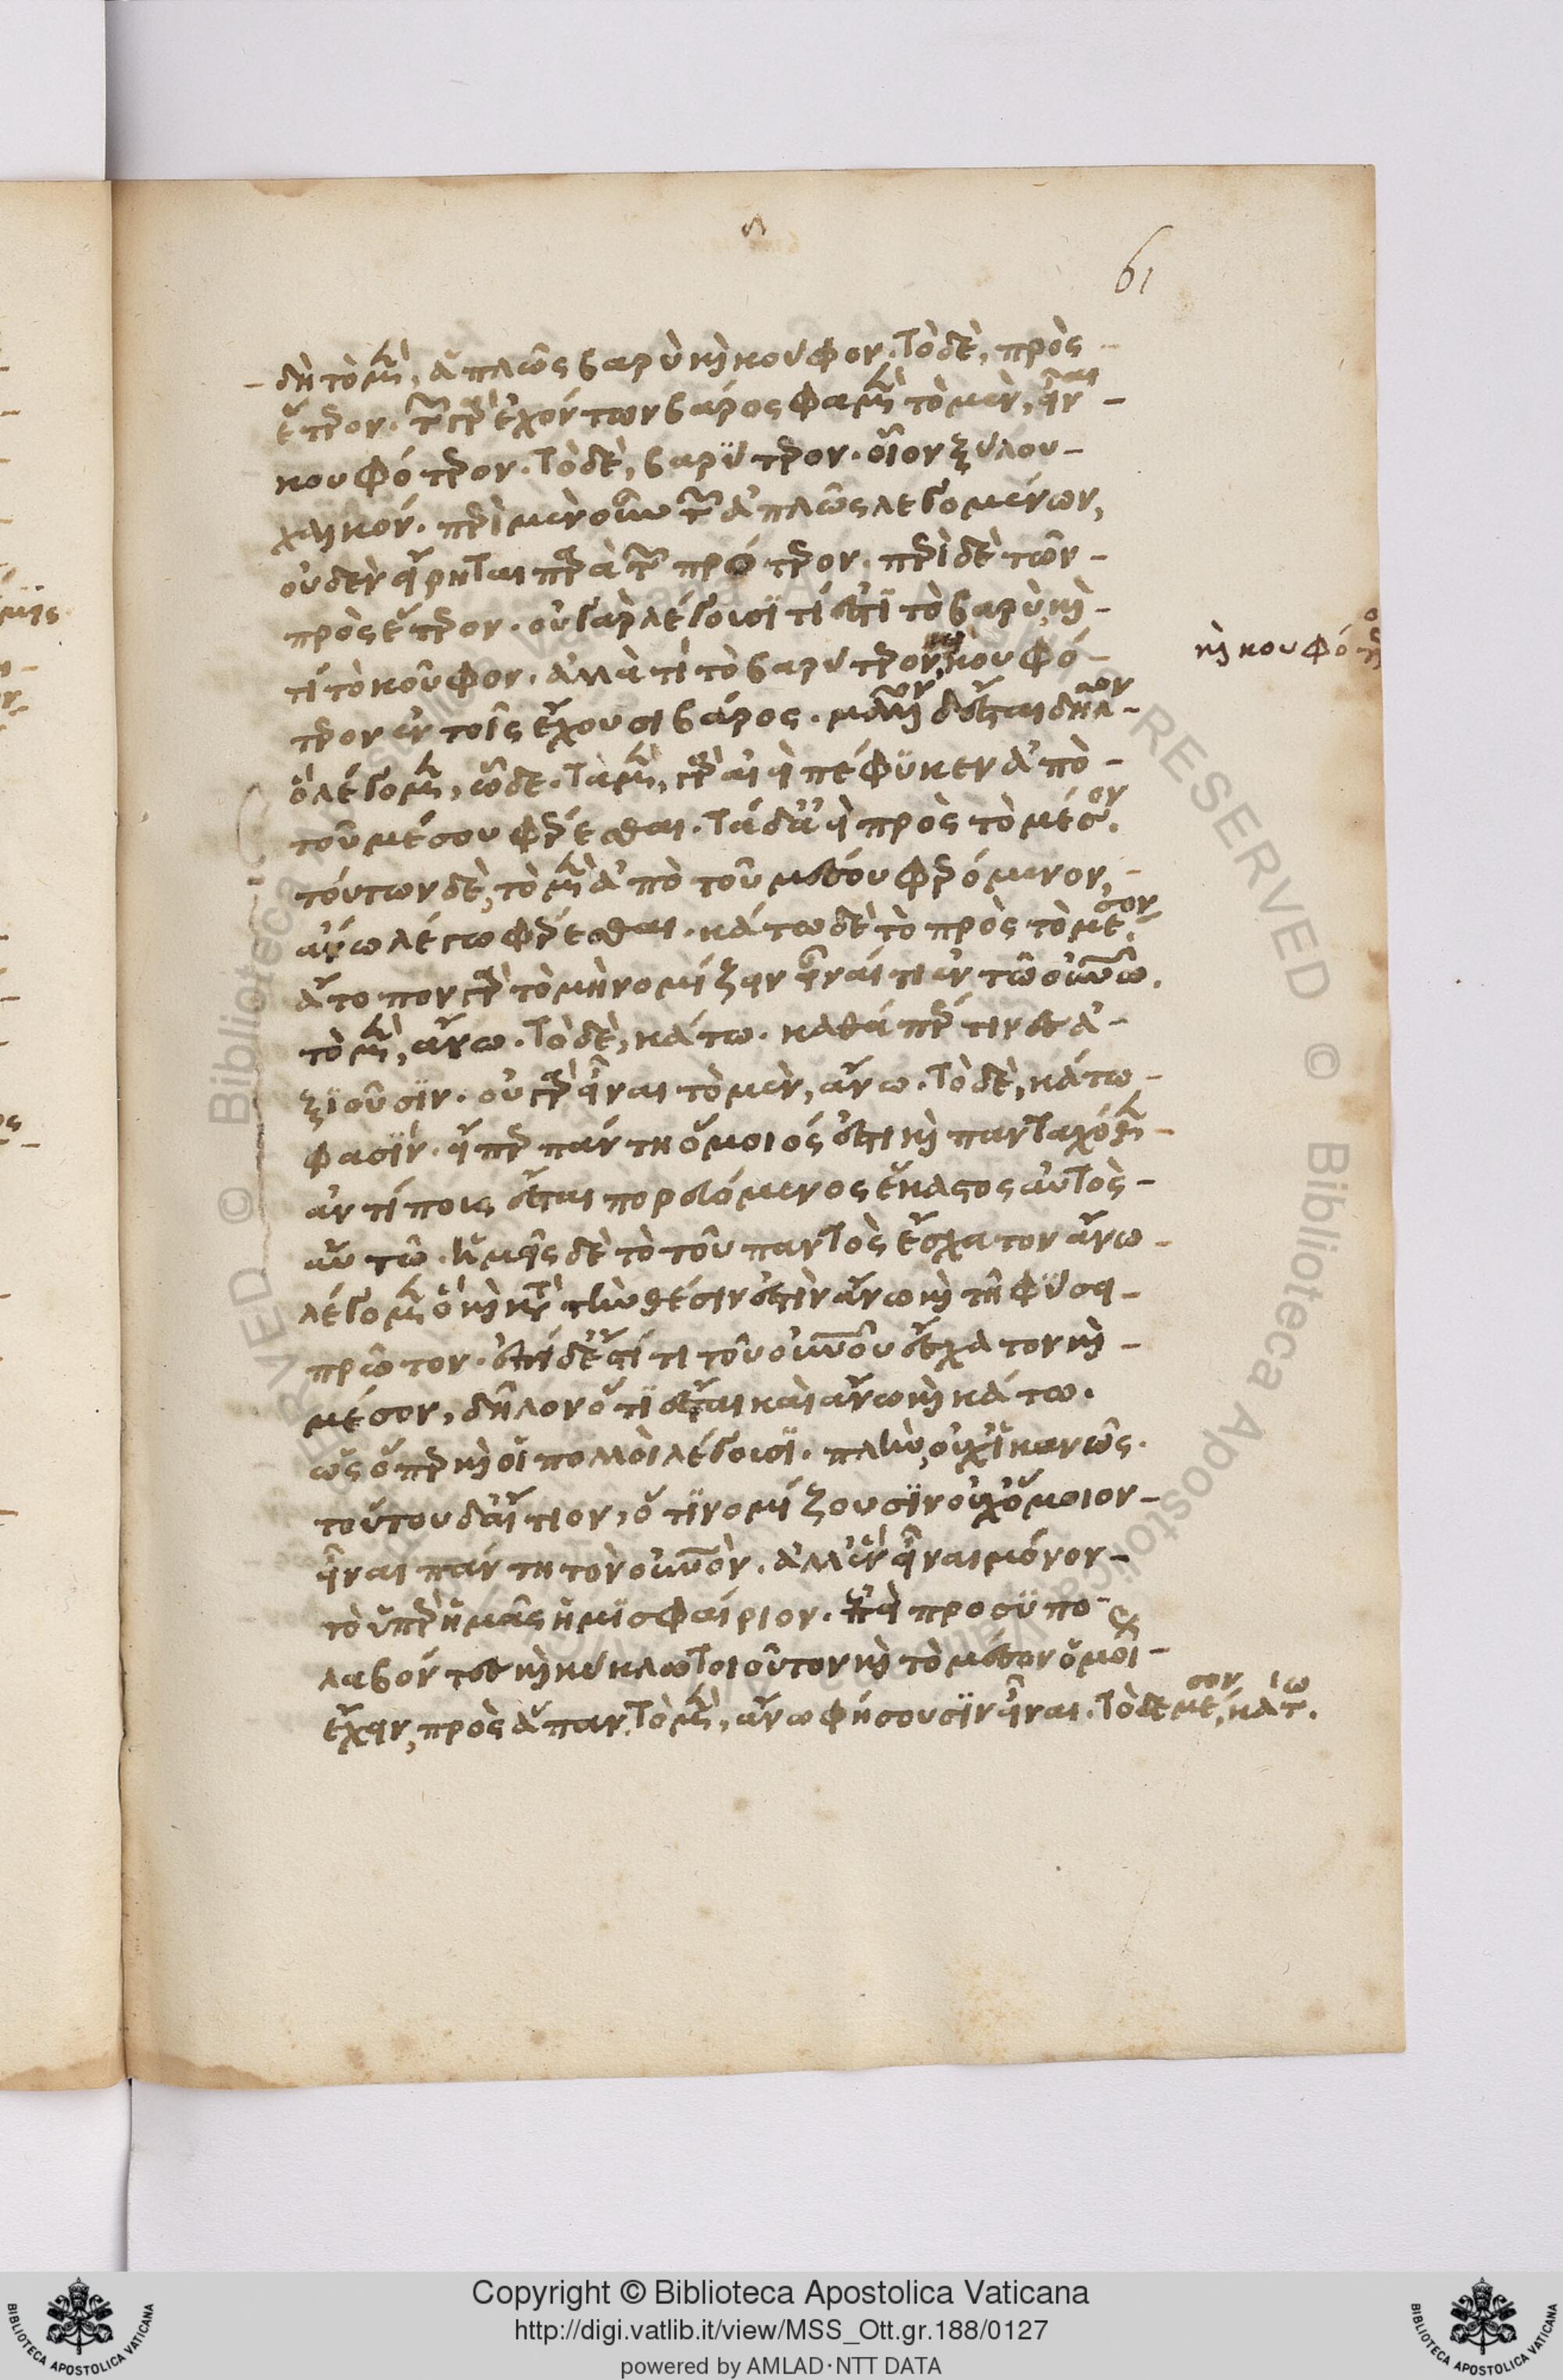 61
δὴ τὸ μὲν, ἁπλῶς βαρὺ καὶ κοῦφον. τὸ δὲ, πρὸς
ἕτερον. τῶν γὰρ ἐχόντων βάρος φαμὲν τὸ μὲν, εἶναι
κουφότερον. τὸ δὲ, βαρύτερον. οἷον ξύλου
χαλκόν. περὶ μὲν οὖν τῶν ἁπλῶς λεγομένων,
οὐδὲν εἴρηται παρὰ τῶν πρότερον. περὶ δὲ τῶν
πρὸς ἕτερον. οὐ γὰρ λέγουσι τί ἐστὶ τὸ βαρὺ, καὶ
τί τὸ κοῦφον. ἀλλὰ τί τὸ βαρύτερον, κουφό
τερον ἐν τοῖς ἔχουσι βάρος. μᾶλλον δ' ἔσται δῆλον
ὃ λέγομεν, ὧδε. τὰ μὲν, γὰρ ἀεὶ πέφυκεν ἀπὸ
τοῦ μέσου φέρεσθαι. τὰ δ' ἀεὶ πρὸς τὸ μέσον.
τούτων δὲ, τὸ μὲν ἀπὸ τοῦ μέσου φερόμενον,
ἄνω λέγω φέρεσθαι. κάτω δὲ τὸ πρὸς τὸ μέσον.
ἄτοπον γὰρ τὸ μὴ νομίζειν εἶναί τι ἐν τῷ οὐρανῷ.
τὸ μὲν, ἄνω. τὸ δὲ, κάτω. καθάπερ τινὲς ἀ
ξιοῦσιν. οὐ γὰρ εἶναι τὸ μὲν, ἄνω. τὸ δὲ, κάτω
φασίν. εἴπερ πάντῃ ὅμοιός ἐστι καὶ πανταχόθεν
ἀντίπους ἔσται πορευόμενος ἕκαστος αὐτὸς
αὑτῷ. ἡμεῖς δὲ τὸ τοῦ παντὸς ἔσχατον ἄνω
λέγομεν ὃ καὶ κατὰ τὴν θέσιν ἐστὶν ἄνω καὶ τῇ φύσει
πρῶτον. ἐπεὶ δ' ἐστί τι τοῦ οὐρανοῦ ἔσχατον καὶ
μέσον, δῆλον ὅτι ἔσται καὶ ἄνω καὶ κάτω.
ὥς ὅπερ καὶ οἱ πολλοὶ λέγουσι. πλὴν, οὐχ ἱκανῶς.
τούτου δ' αἴτιον, ὅτι νομίζουσιν οὐχ ὅμοιον
εἶναι πάντῃ τὸν οὐρανόν. ἀλλ' ἓν εἶναι μόνον
τὸ ὑπὲρ ἡμᾶς ἡμισφαίριον. ἐπεὶ προσϋπο
λαβόντες καὶ κύκλῳ τοιοῦτον καὶ τὸ μέσον ὁμοίως
ἔχειν, πρὸς ἅπαν, τὸ μὲν, ἄνω φήσουσιν εἶναι. τὸ δὲ μέσον, κάτω.
καὶ κουφότερον
Copyright © Biblioteca Apostolica Vaticana
http://digi.vatlib.it/view/MSS_Ott.gr.188/0127
powered by AMLAD·NTT DATA
BIBLIOTECA APOSTOLICA VATICANA
BIBLIOTECA APOSTOLICA VATICANA